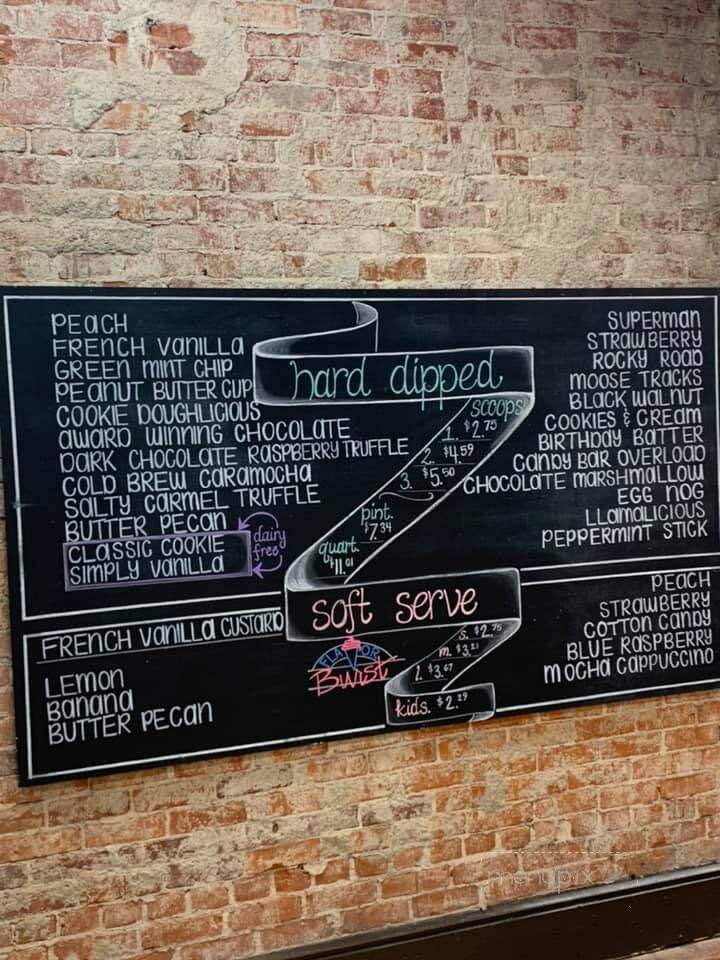 PEACH
FRENCH VANILLA
GREEN MINT CHIP
PEANUT BUTTER CUP
COOKIE DOUGHLICIOUS
AWARD WINNING CHOCOLATE
DARK CHOCOLATE RASPBERRY TRUFFLE
COLD BREW CARAMOCHA
SALTY CARMEL TRUFFLE
BUTTER PECAN
CLASSIC COOKIE
SIMPLY VANILLA
dairy
free
hard dipped
scoops
1. $2.75
2. $4.59
3. $5.50
pint.
$7.34
quart.
$11.01
SUPERMAN
STRAWBERRY
ROCKY ROAD
MOOSE TRACKS
BLACK WALNUT
COOKIES & CREAM
BIRTHDAY BATTER
CANDY BAR OVERLOAD
CHOCOLATE MARSHMALLOW
EGG NOG
LLAMALICIOUS
PEPPERMINT STICK
soft serve
FRENCH VANILLA CUSTARD
LEMON
BANANA
BUTTER PECAN
FLAVOR
Burst
s. $2.75
m. $3.21
l. $3.67
kids. $2.29
PEACH
STRAWBERRY
COTTON CANDY
BLUE RASPBERRY
MOCHA CAPPUCCINO
menupix